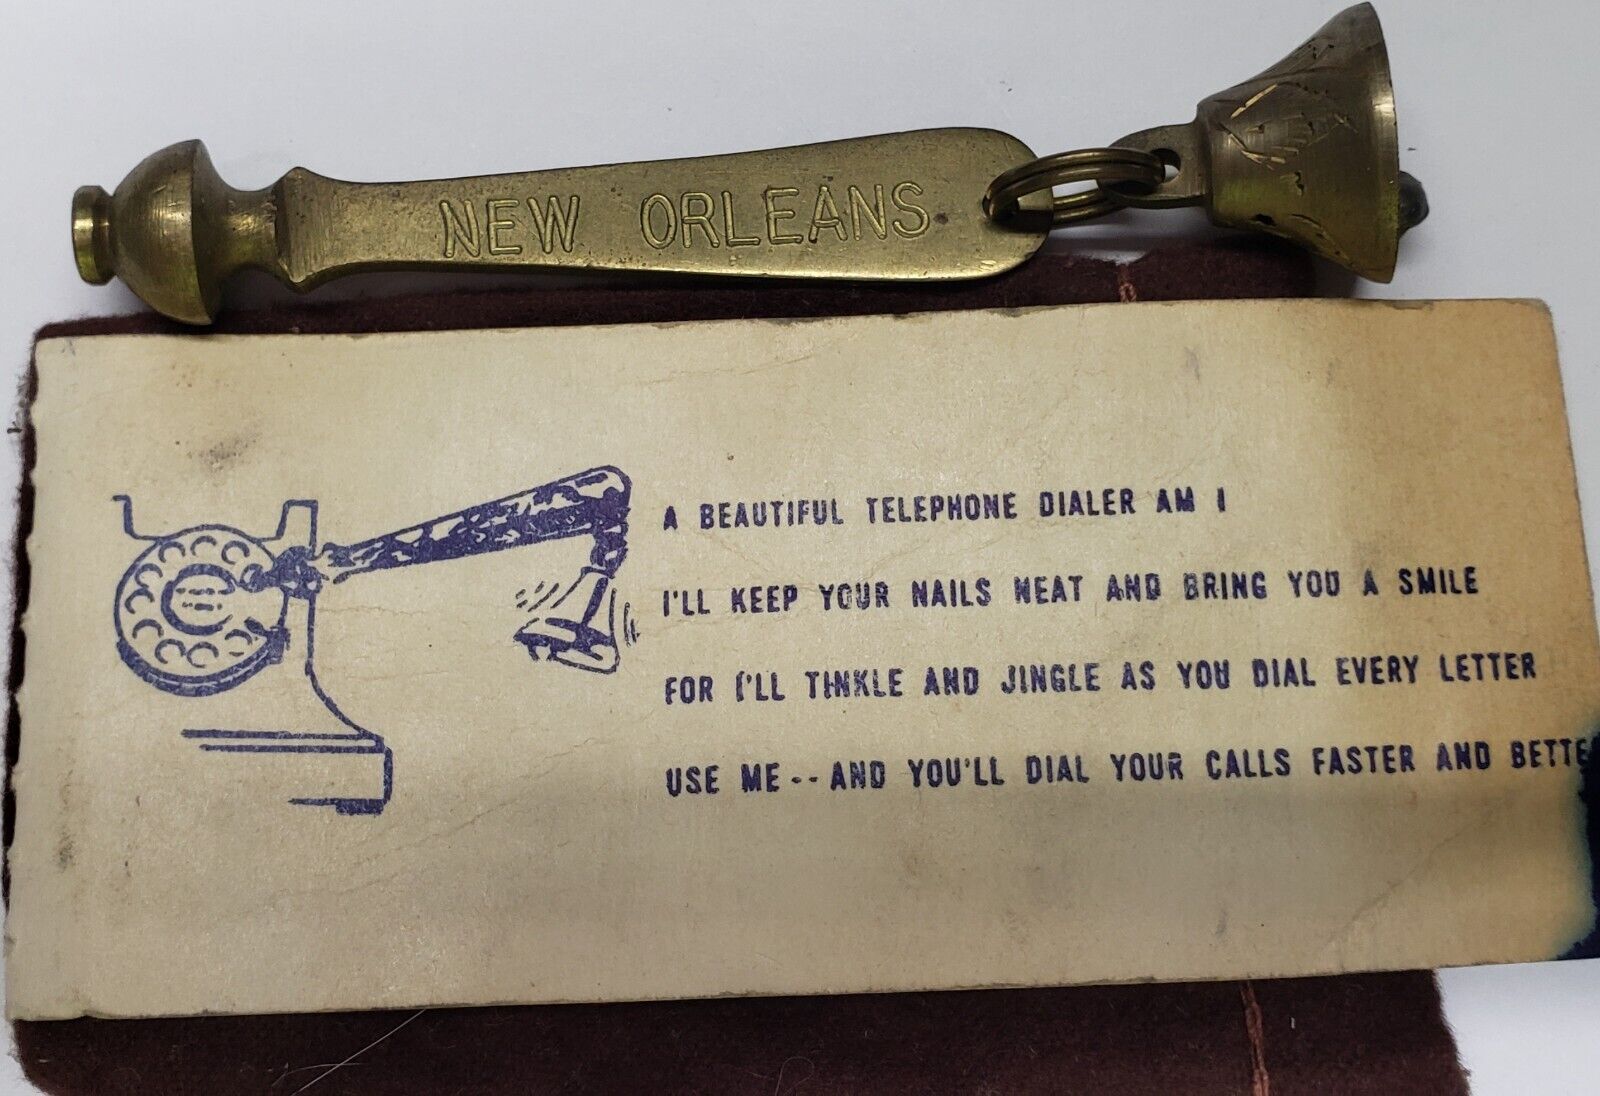 NEW ORLEANS
A BEAUTIFUL TELEPHONE DIALER AM I
I'LL KEEP YOUR NAILS NEAT AND BRING YOU A SMILE
FOR I'LL TINKLE AND JINGLE AS YOU DIAL EVERY LETTER
USE ME -- AND YOU'LL DIAL YOUR CALLS FASTER AND BETTE